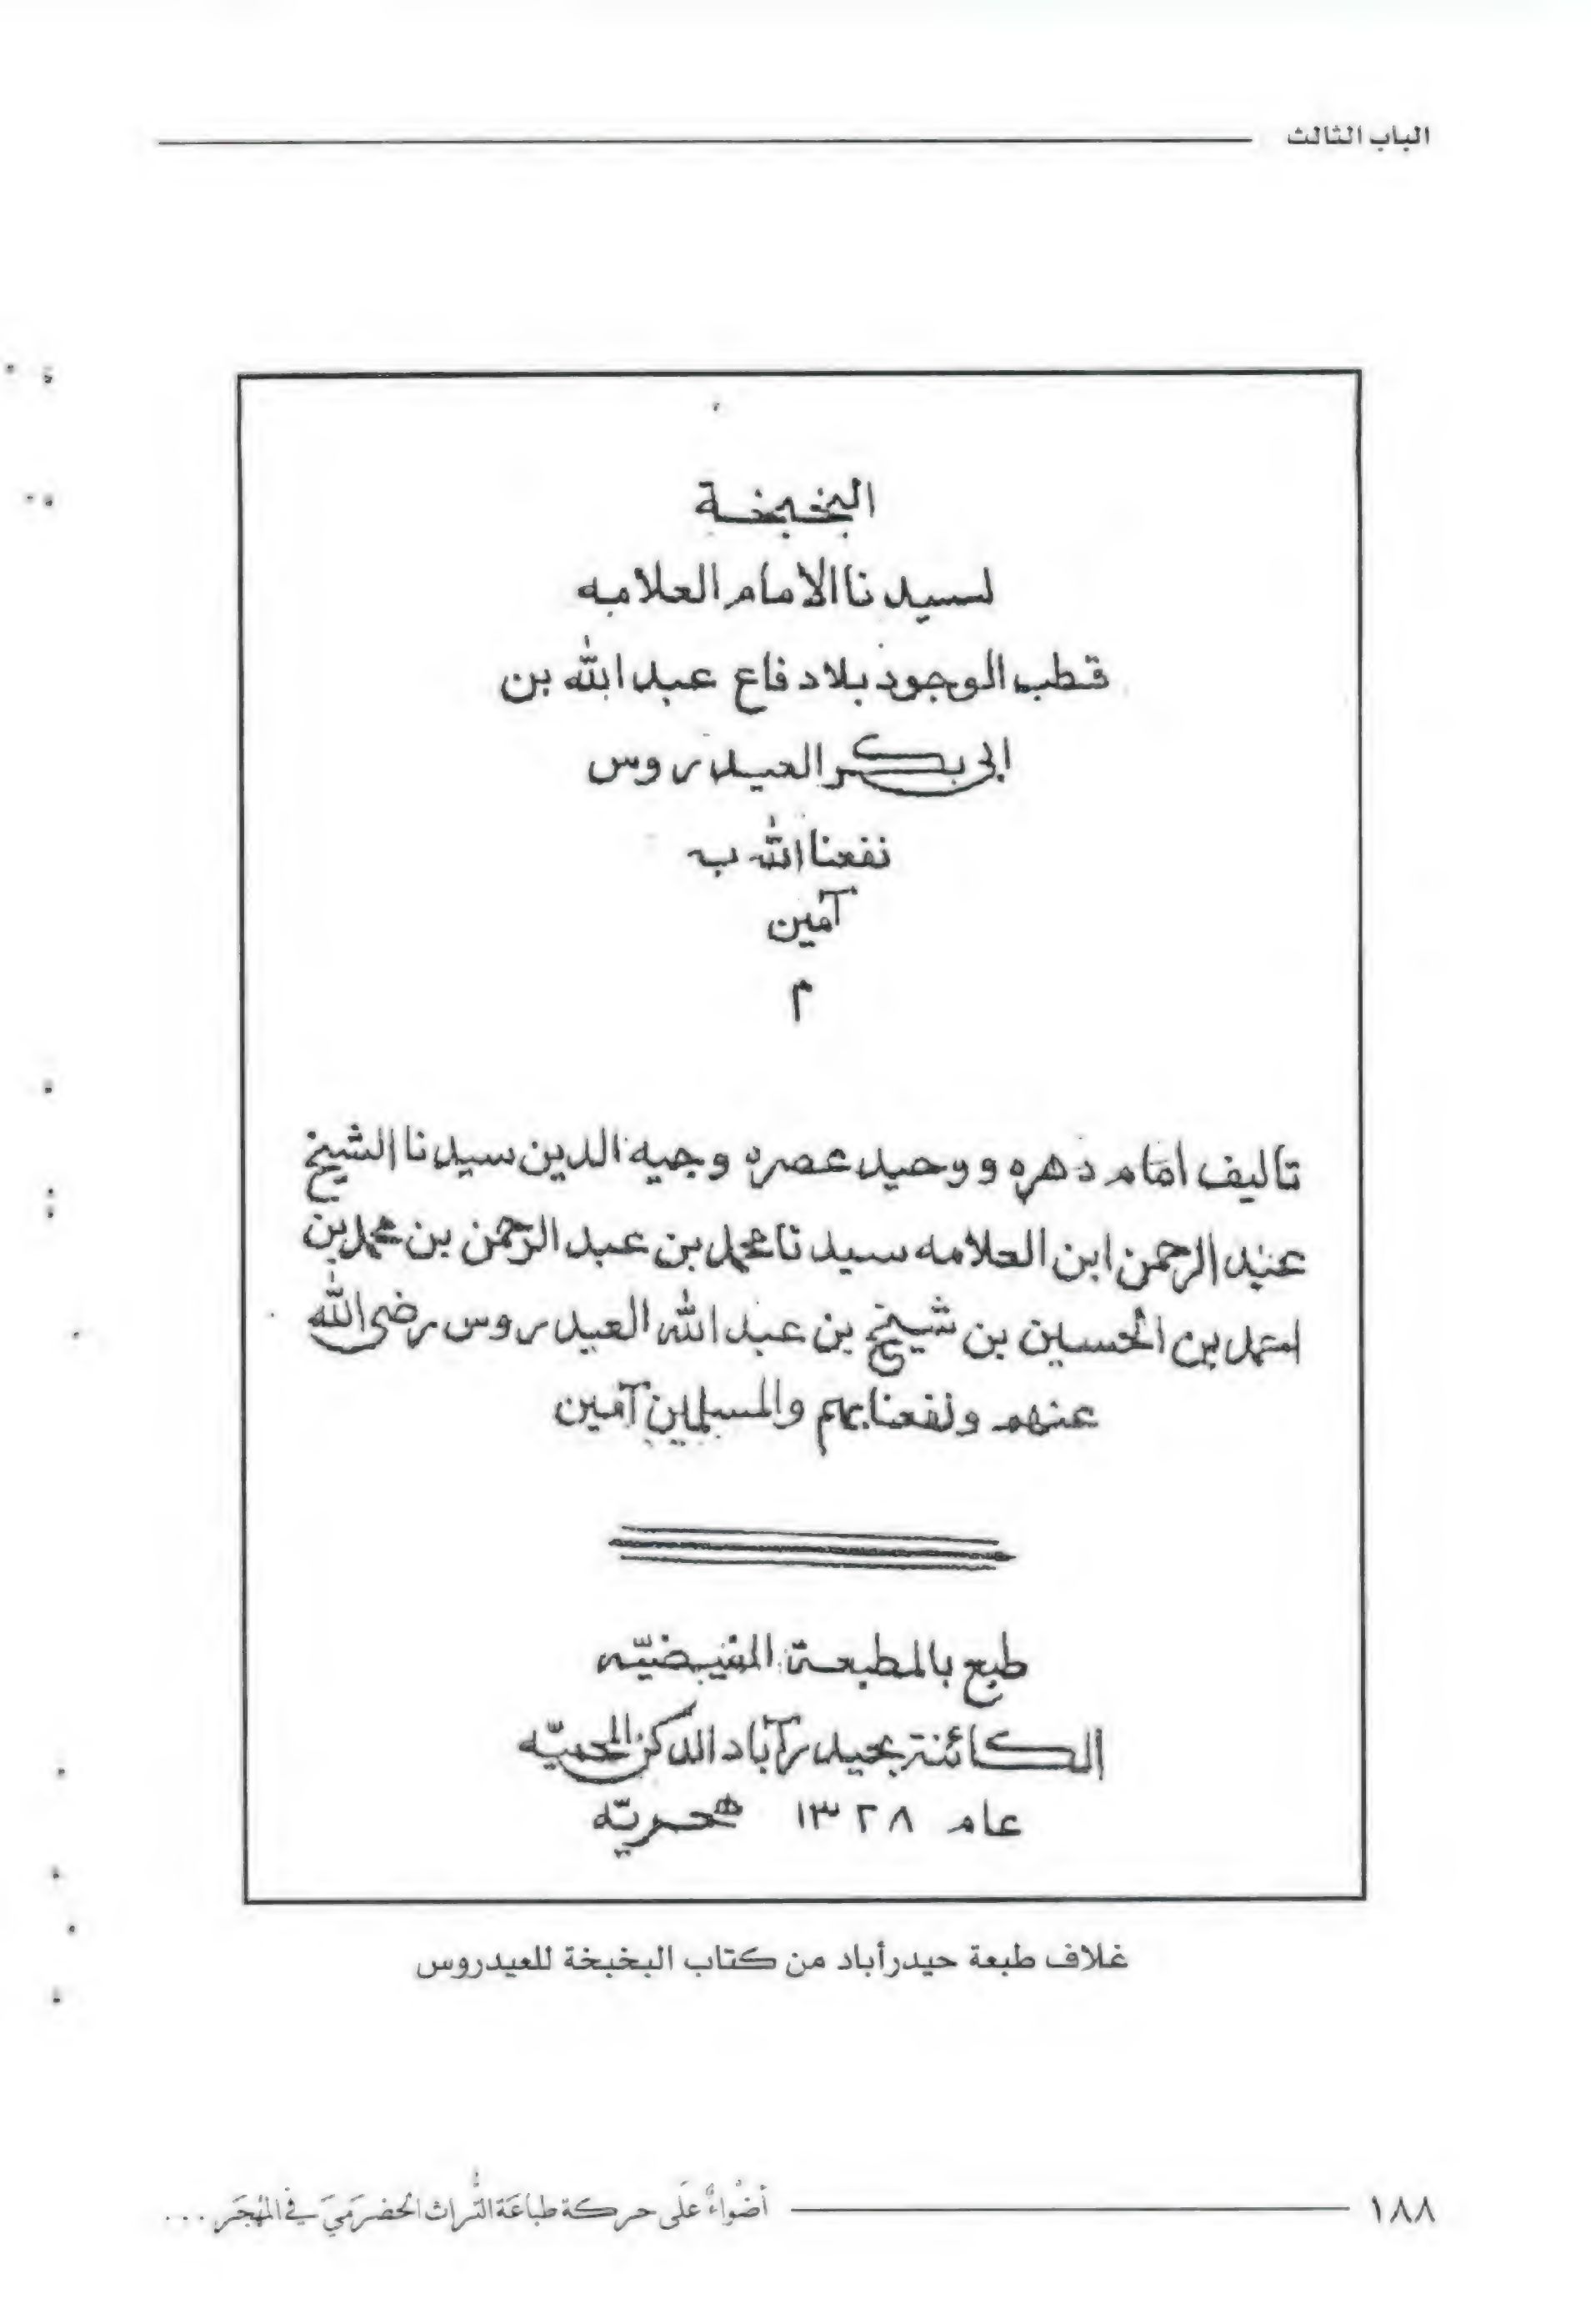 الباب الثالث
البخبخة
لسيدنا الامام العلامه
قطب الوجود بلا دفاع عبد الله بن
ابي بكر العيدروس
نفعنا الله به
آمين
م
تاليف امام دهره ووحيد عصره وجيه الدين سيدنا الشيخ
عبد الرحمن ابن العلامه سيدنا محمد بن عبد الرحمن بن محمد بن
احمد بن الحسين بن شيخ بن عبد الله العيدروس رضي الله
عنهم ونفعنا بهم والمسلمين آمين
طبع بالمطبعة الفيضيّه
الكائنة بحيدرآباد الدكن المحميّه
عام ١٣٢٨ هجريّه
غلاف طبعة حيدرأباد من كتاب البخبخة للعيدروس
١٨٨ أضْواءٌ عَلَى حركة طباعَة التُّراث الحضرَميّ في المَهْجَر ...